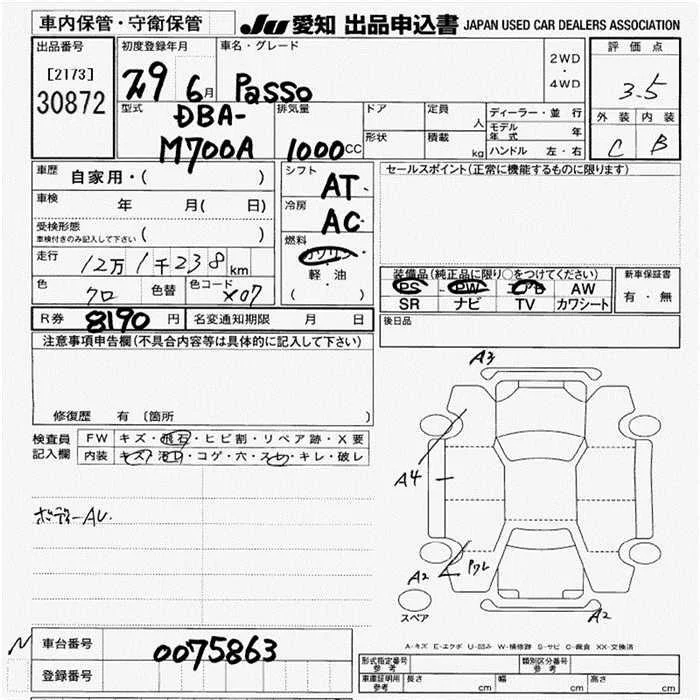 車内保管・守衛保管
JU 愛知 出品申込書 JAPAN USED CAR DEALERS ASSOCIATION
出品番号
[2173]
30872
初度登録年月
29 6月
車名・グレード
Passo
2WD
・
4WD
評価点
3.5
外装 内装
C B
型式
DBA-
M700A
排気量
1000cc
ドア
定員
人
形状
積載
kg
ディーラー・並行
モデル年式 年
ハンドル 左・右
車歴
自家用・( )
車検
年 月( 日)
受検形態
車検付きのみ記入して下さい ( )
走行
12万1千238km
色
クロ
色替
色コード
X07
シフト
AT
冷房
AC
燃料
ガソリン・
軽・油
( )
セールスポイント(正常に機能するものに限ります)
装備品(純正品に限り○をつけてください)
PS PW AW
SR ナビ TV カワシート
新車保証書
有・無
R券 8190円
名変通知期限 月 日
後日品
注意事項申告欄(不具合内容等は具体的に記入して下さい)
修復歴 有 〔箇所 〕
検査員
記入欄
FW キズ・飛石・ヒビ割・リペア跡・X要
内装 キズ・汚レ・コゲ・穴・スレ・キレ・破レ
ボディーAU.
A3
A4
A2
ワレ
A2
スペア
A-キズ E-エクボ U-凹み W-補修跡 S-サビ C-腐食 XX-交換済
N
車台番号
0075863
登録番号
形式指定番号
参考
類別区分番号
参考
車庫証明用
参考
長さ cm
幅 cm
高さ cm